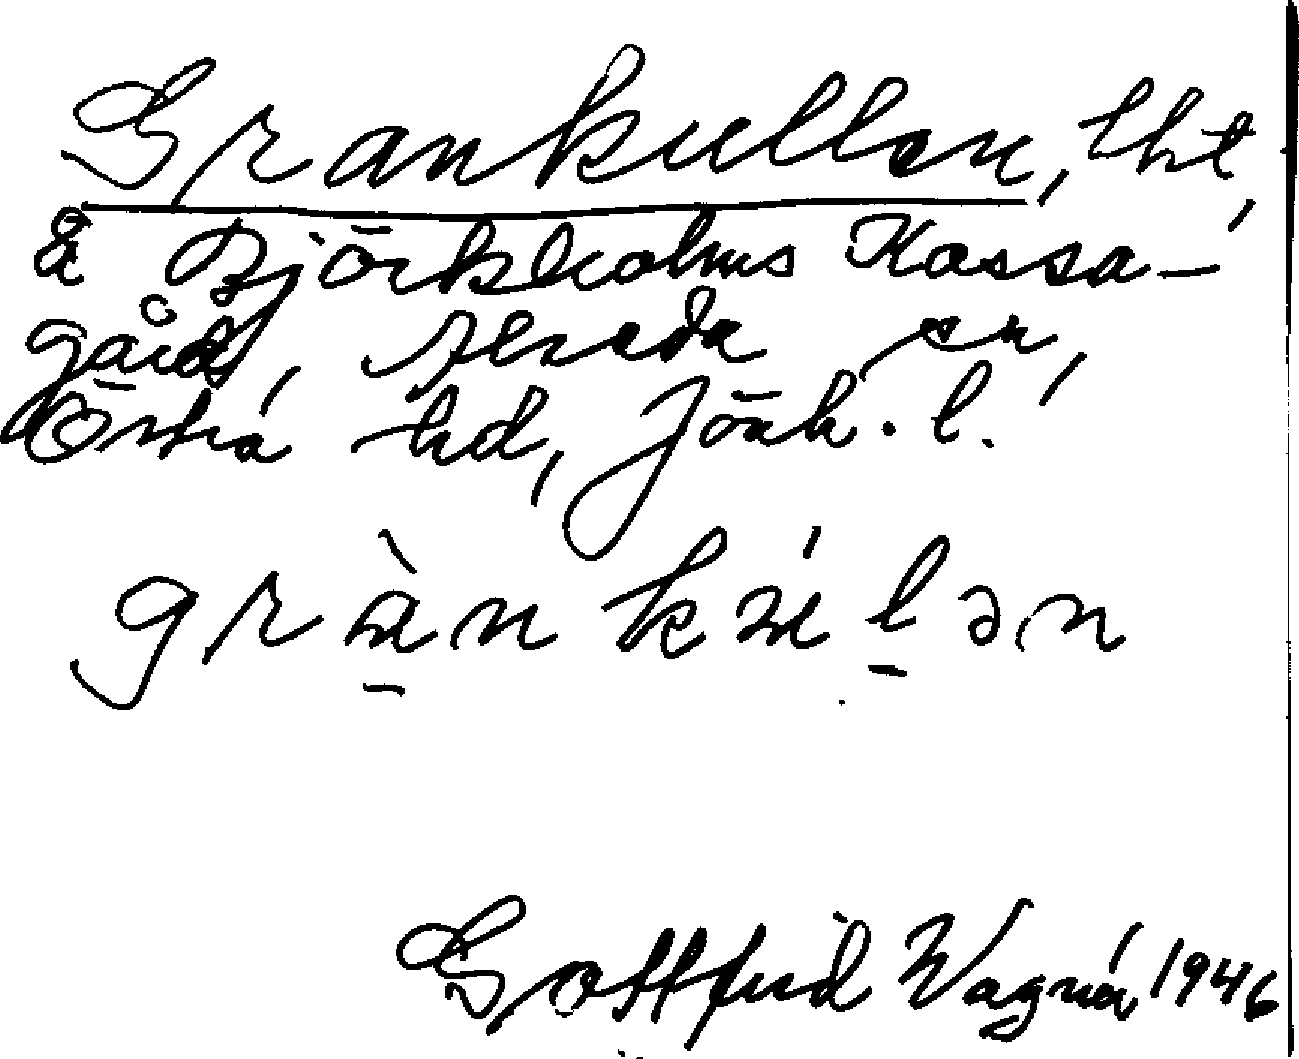 Grankullen, lht,
å Björkholms Kassa-
gård, Skeda sn,
Östra hd, Jönk. l.
grànkúlən
Gottfrid Wagnér 1946